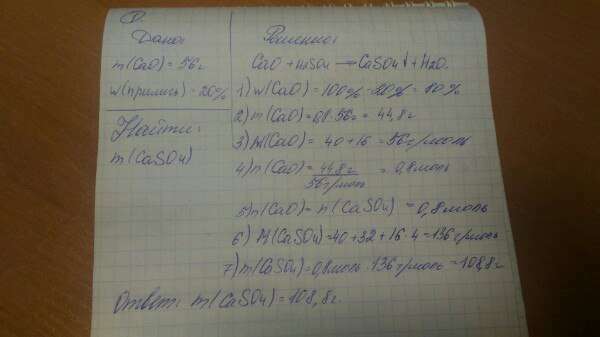 Дано:
m(CaO) = 56г
w(примись) - 20%
Найти:
m(CaSO4)
Решение:
CaO + H2SO4 → CaSO4↓ + H2O
1) w(CaO) = 100% - 20% = 80%
2) m(CaO) = 0,8 · 56г = 44,8г
3) M(CaO) = 40 + 16 = 56г/моль
4) n(CaO) = 44,8г / 56г/моль = 0,8моль
5) n(CaO) = n(CaSO4) = 0,8моль
6) M(CaSO4) = 40 + 32 + 16 · 4 = 136г/моль
7) m(CaSO4) = 0,8моль · 136г/моль = 108,8г
Ответ: m(CaSO4) = 108,8г.